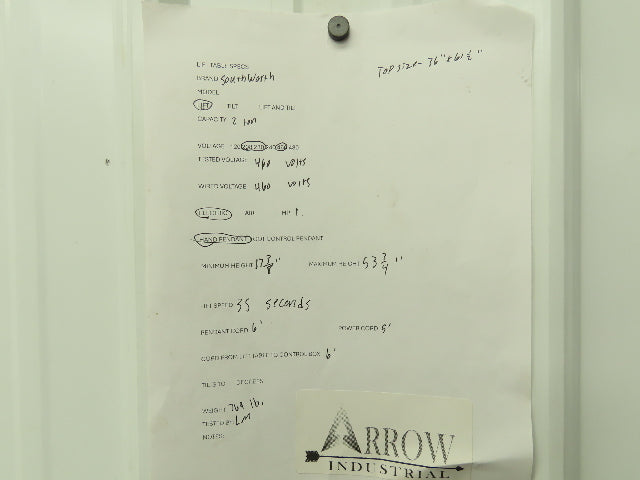 TOP SIZE- 36" x 61 1/2"
LIFT TABLE SPECS
BRAND Southworth
MODEL
LIFT TILT LIFT AND TILT
CAPACITY 2 ton
VOLTAGE 120 208 230 240 460 480
TESTED VOLTAGE 460 volts
WIRED VOLTAGE 460 volts
ELECTRIC AIR HP 1.
HAND PENDANT FOOT CONTROL PENDANT
MINIMUM HEIGHT 17 7/8" MAXIMUM HEIGHT 53 3/4"
LIFT SPEED 35 seconds
PENDANT CORD 6' POWER CORD 5'
CORD FROM LIFT TABLE TO CONTROL BOX 6'
TILTS TO DEGREES
WEIGHT 769 lb.
TESTED BY LM
NOTES:
ARROW
INDUSTRIAL